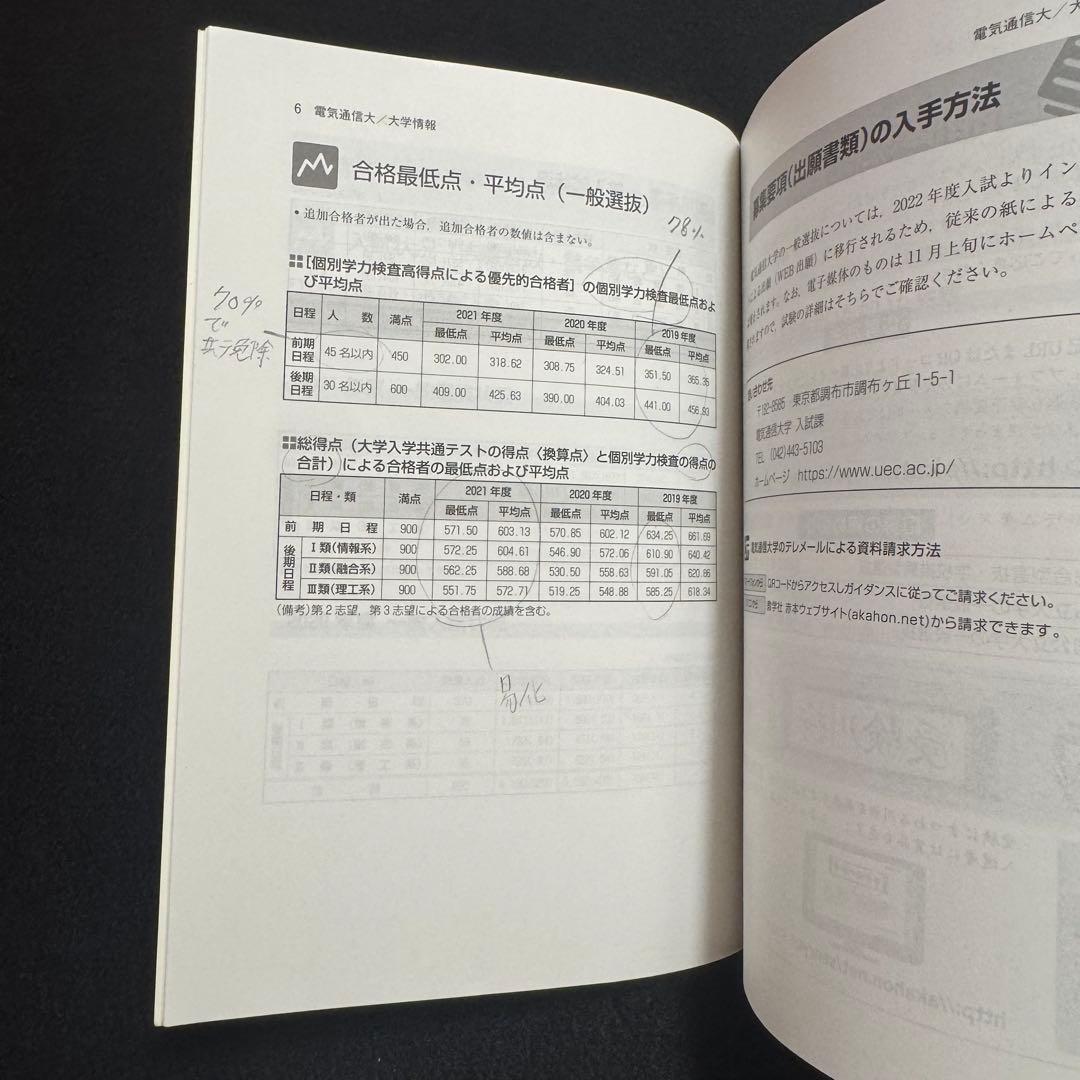 6 電気通信大／大学情報
合格最低点・平均点（一般選抜）
78%
• 追加合格者が出た場合，追加合格者の数値は含まない。
[個別学力検査高得点による優先的合格者] の個別学力検査最低点およ
び平均点
70%
で
共テ免除
日程 人 数 満点 2021 年度 2020 年度 2019 年度
最低点 平均点 最低点 平均点 最低点 平均点
前期日程 45 名以内 450 302.00 318.62 308.75 324.51 351.50 365.35
後期日程 30 名以内 600 409.00 425.63 390.00 404.03 441.00 456.93
総得点（大学入学共通テストの得点〈換算点〉と個別学力検査の得点の
合計）による合格者の最低点および平均点
日程・類 満点 2021 年度 2020 年度 2019 年度
最低点 平均点 最低点 平均点 最低点 平均点
前 期 日 程 900 571.50 603.13 570.85 602.12 634.25 661.69
後期日程 Ⅰ類(情報系) 900 572.25 604.61 546.90 572.06 610.90 640.42
Ⅱ類(融合系) 900 562.25 588.68 530.50 558.63 591.05 620.86
Ⅲ類(理工系) 900 551.75 572.71 519.25 548.88 585.25 618.34
(備考)第２志望，第３志望による合格者の成績を含む。
易化
電気通信大／大
募集要項(出願書類)の入手方法
電気通信大学の一般選抜については，2022 年度入試よりイン
による出願（WEB 出願）に移行されるため，従来の紙による
されます。なお，電子媒体のものは 11 月上旬にホームペ
ますので，試験の詳細はそちらでご確認ください。
合わせ先
〒182-8585 東京都調布市調布ヶ丘 1-5-1
電気通信大学 入試課
TEL (042)443-5103
ホームページ https://www.uec.ac.jp/
電気通信大学のテレメールによる資料請求方法
QRコードからアクセスしガイダンスに従ってご請求ください。
教学社 赤本ウェブサイト(akahon.net)から請求できます。